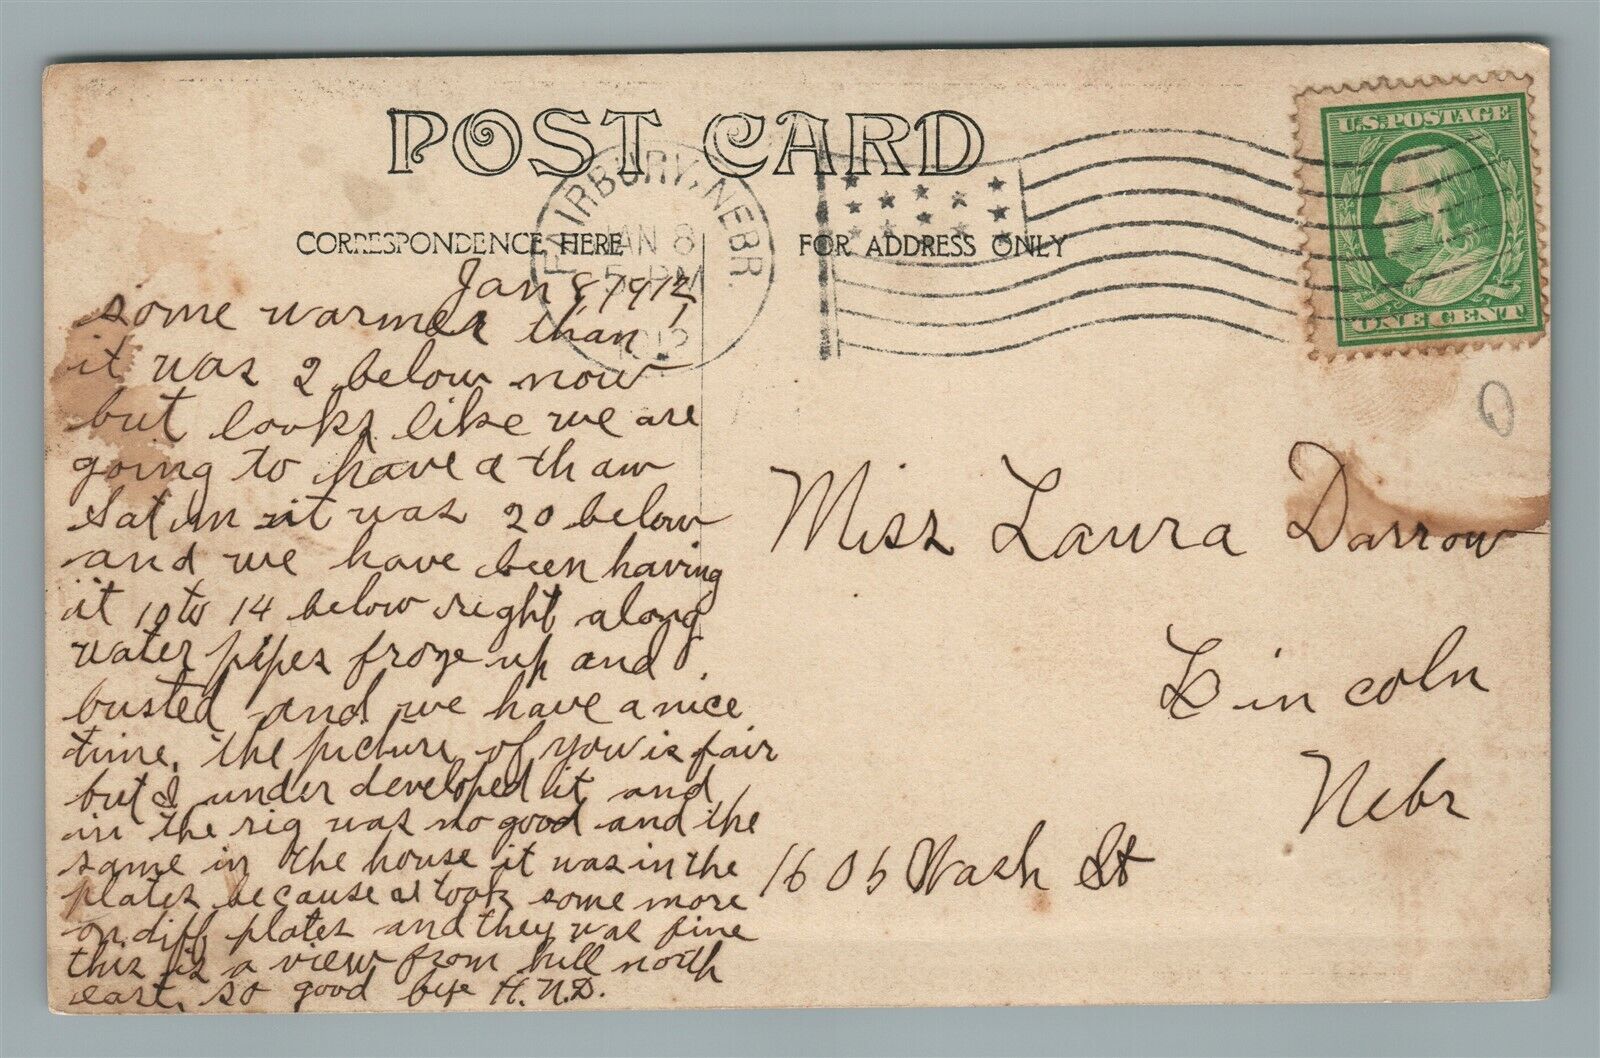 POST CARD
FAIRBURY, NEBR.
JAN 8
5 PM
1912
U.S. POSTAGE
ONE CENT
CORRESPONDENCE HERE
FOR ADDRESS ONLY
Jan 8, 1912,
some warmer than
it was 2 below now
but looks like we are
going to have a thaw
Sat mn it was 20 below
and we have been having
it 10 to 14 below right along
water pipes froze up and
busted and we have a nice
time. the picture of you is fair
but I under developed it and
in the rig was no good and the
same in the house it was in the
plates because I took some more
on diff plates and they was fine
this is a view from hill north
east, so good bye H.N.D.
Miss Laura Darrow
Lincoln
Nebr
1606 Wash St